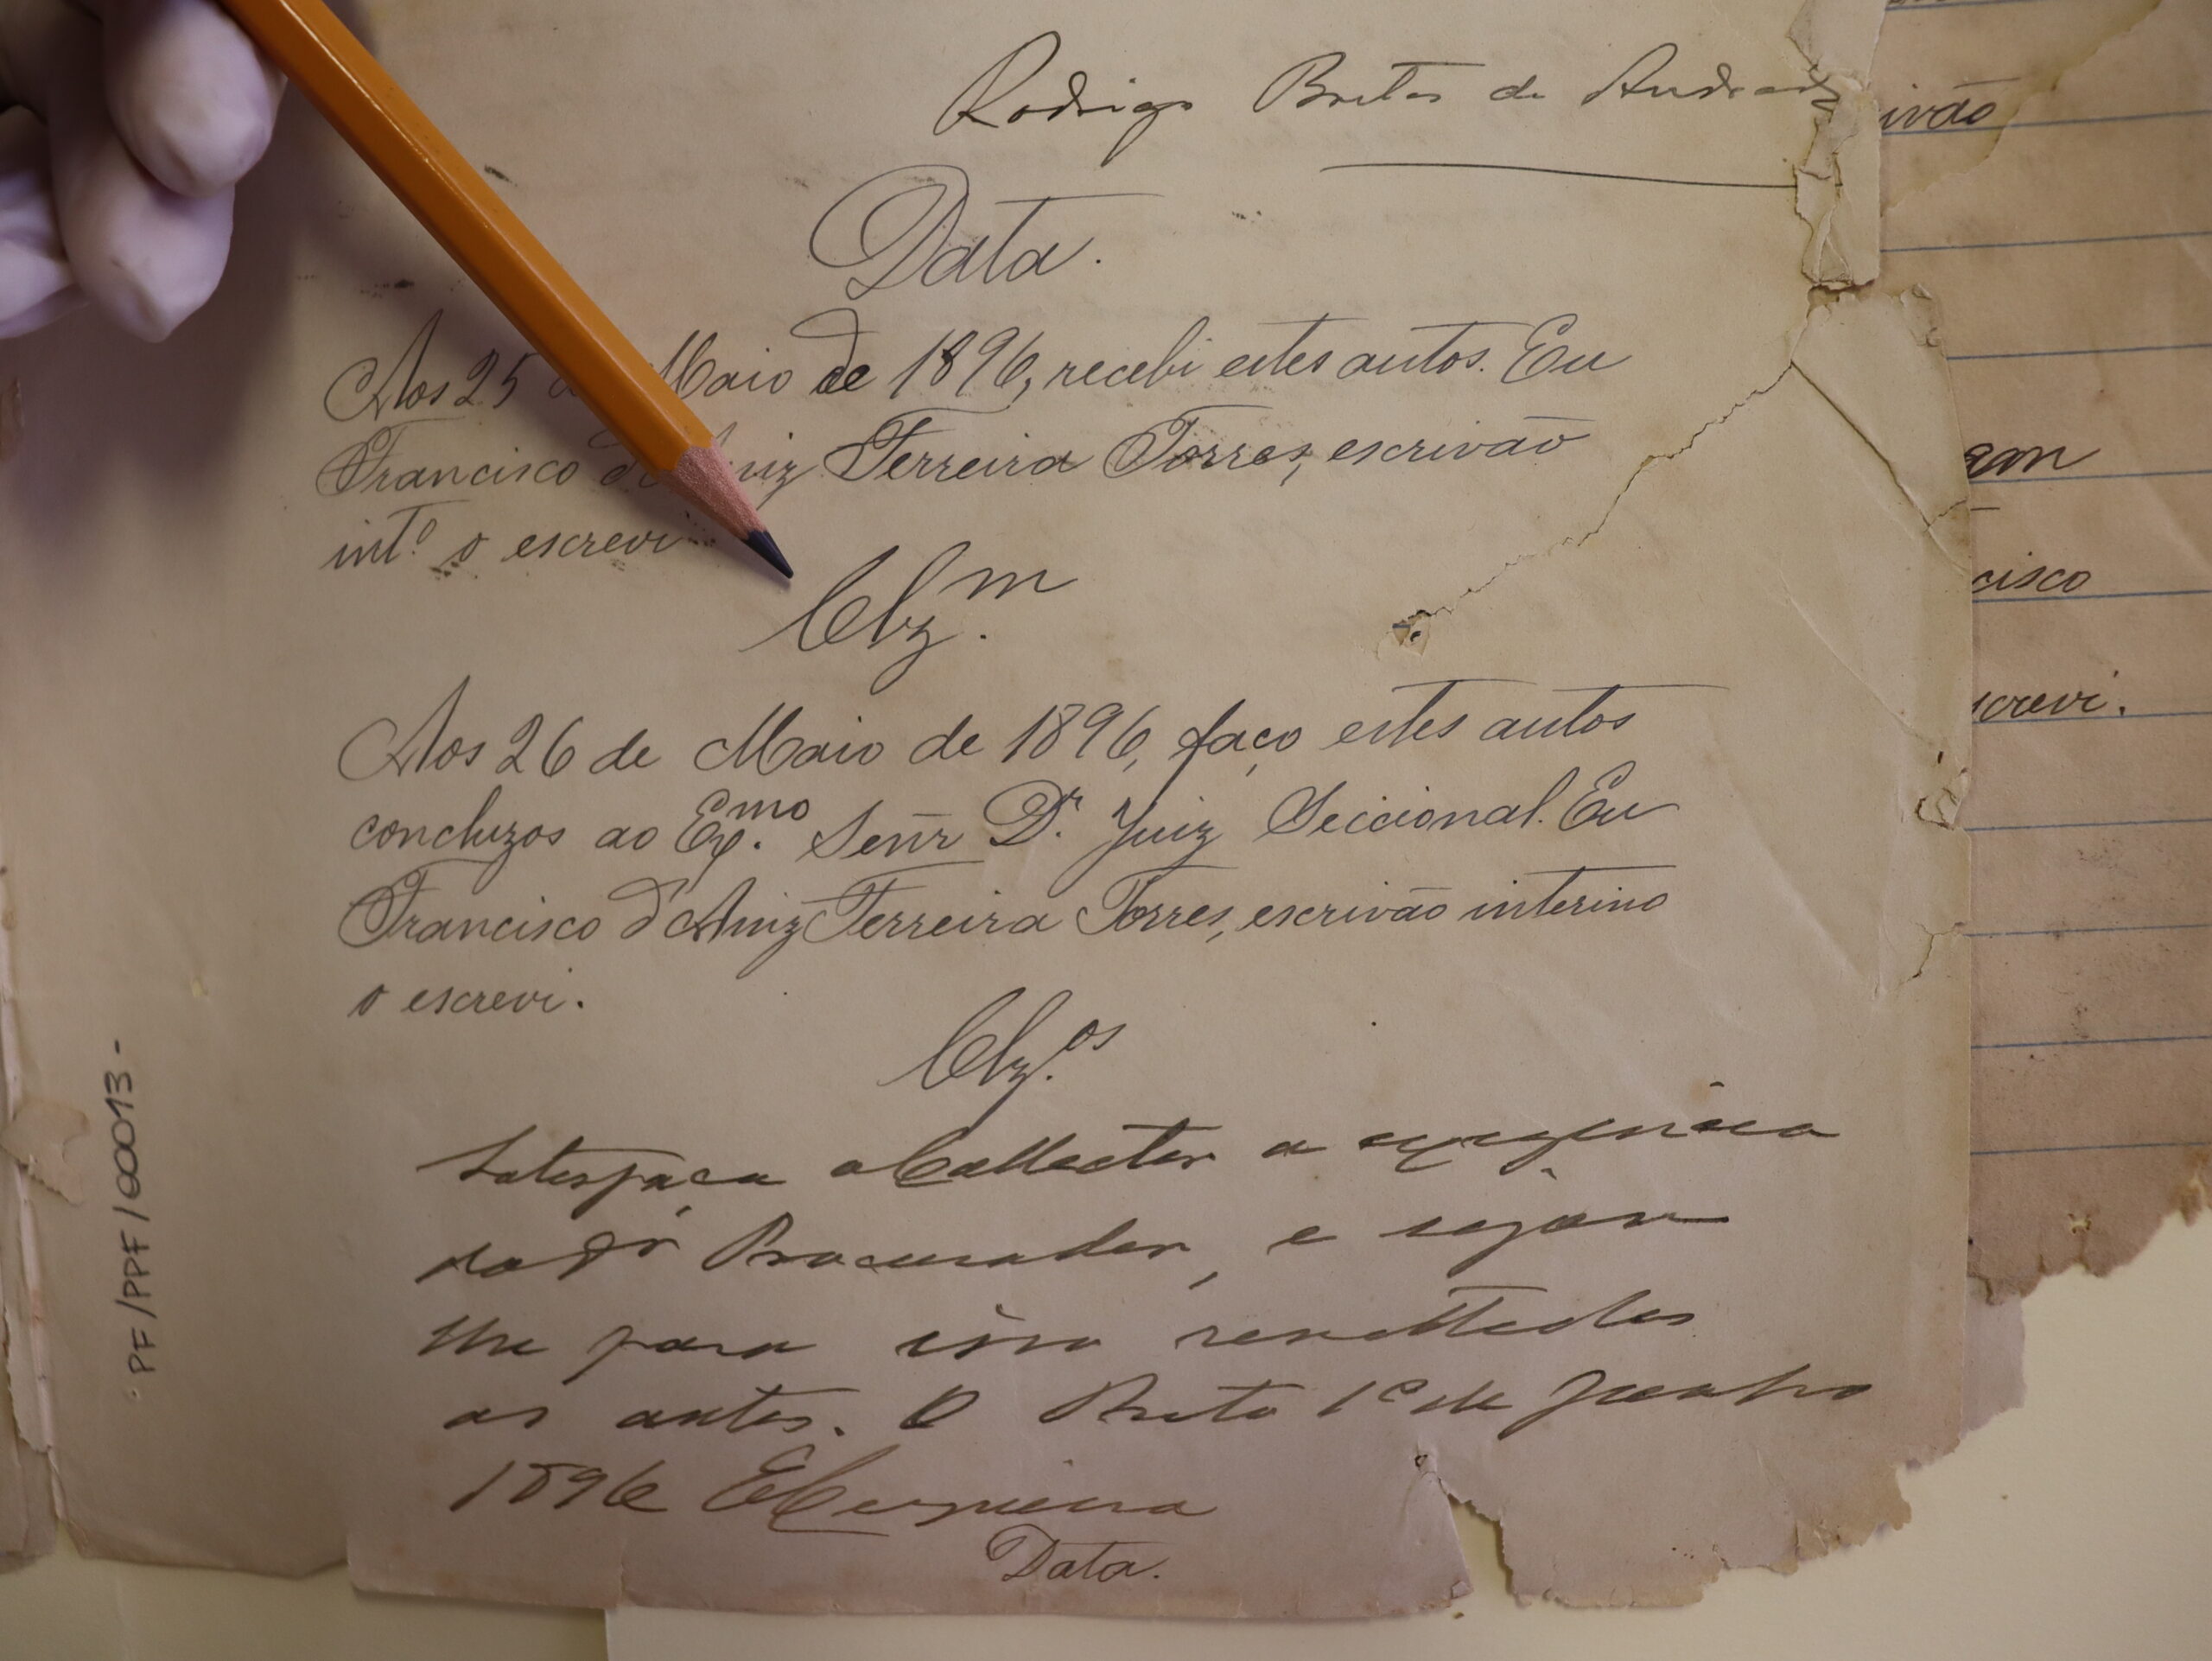 Rodrigo Bretas de Andrade
Data.
Aos 25 de Maio de 1896, recebi estes autos. Eu
Francisco d' Ferreira Torres, escrivão
intº o escrevi
Clzm.
Aos 26 de Maio de 1896, faço estes autos
concluzos ao Exmo. Señr Dr. Juiz Seccional. Eu
Francisco d'Aniz Ferreira Torres, escrivão interino
o escrevi.
Clz.os
Satisfaça o Collector a exigencia
do Dr Procurador, e sejão
lhe para isso remettidos
os autos. O Preto 1º de Junho
1896
Data.
PF/PPF/00013-
ivão
am
cisco
screvi.